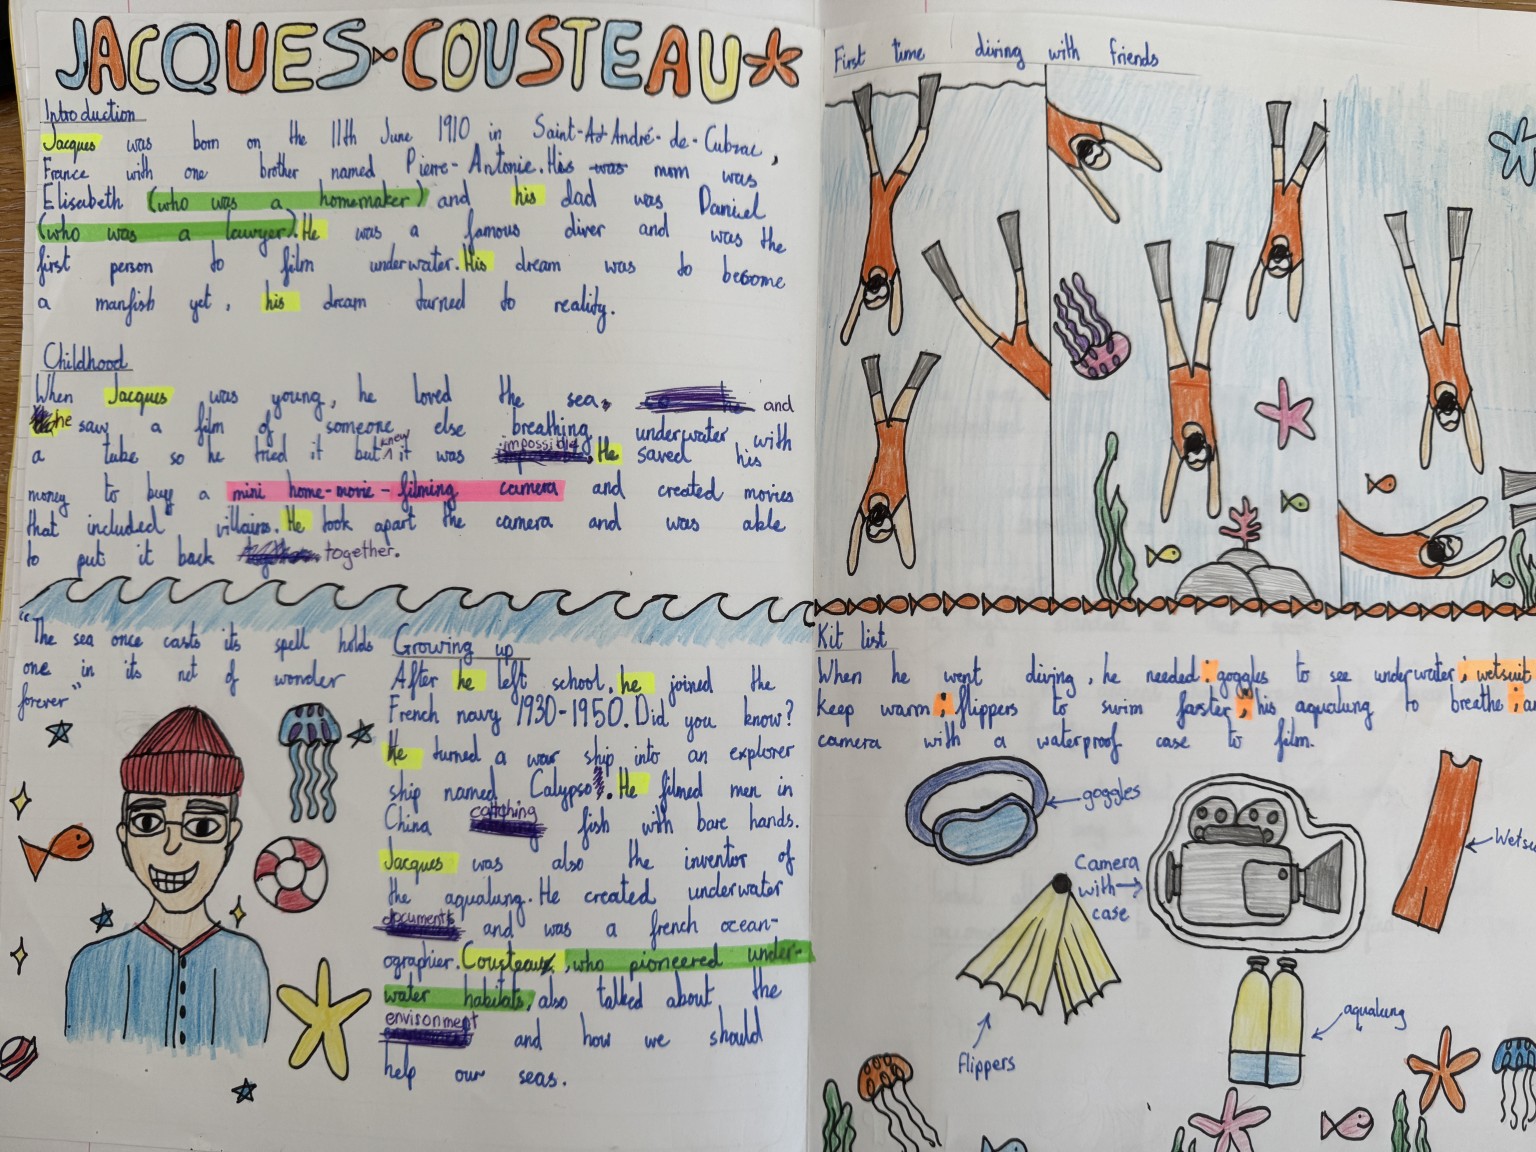 JACQUES-COUSTEAU
Introduction
Jacques was born on the 11th June 1910 in Saint-André-de-Cubzac,
France with one brother named Pierre-Antonie. His was mom was
Elisabeth (who was a homemaker) and his dad was Daniel
(who was a lawyer). He was a famous diver and was the
first person to film underwater. His dream was to become
a manfish yet, his dream turned to reality.
Childhood
When Jacques was young, he loved the sea, and
he saw a film of someone else breathing underwater with
a tube so he tried it but knew it was impossible. He saved his
money to buy a mini home-movie-filming camera and created movies
that included villains. He took apart the camera and was able
to put it back together.
"The sea once casts its spell holds
one in its net of wonder
forever"
Growing up
After he left school, he joined the
French navy 1930-1950. Did you know?
He turned a war ship into an explorer
ship named Calypso. He filmed men in
China catching fish with bare hands.
Jacques was also the inventor of
the aqualung. He created underwater
documents and was a french ocean-
ographier. Cousteau, who pioneered under-
water habitats, also talked about the
envisonment and how we should
help our seas.
First time diving with friends
Kit list
When he went diving, he needed: goggles to see underwater; wetsuit
keep warm; flippers to swim farster; his aqualung to breathe;
camera with a waterproof case to film.
goggles
Camera
with
case
Flippers
aqualung